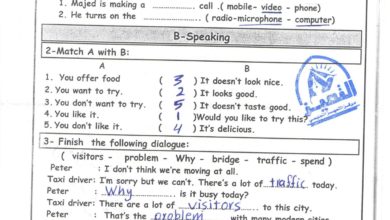 1. Majed is making a .................. call .( mobile- video - phone)
2. He turns on the .................. ( radio-microphone - computer)
B-Speaking
2-Match A with B:
A B
1. You offer food ( 3 ) It doesn't look nice.
2. You want to try. ( 2 ) It looks good.
3. You don't want to try. ( 5 ) It doesn't taste good.
4. You like it. ( 1 )Would you like to try this?
5. You don't like it. ( 4 ) It's delicious.
3- Finish the following dialogue:
( visitors - problem - Why - bridge - traffic - spend )
Peter : I don't think we're moving at all.
Taxi driver: I'm sorry but we can't. There's a lot of traffic today.
Peter : Why is it busy today?
Taxi driver: There are a lot of visitors to this city.
Peter : That's the problem with many modern cities